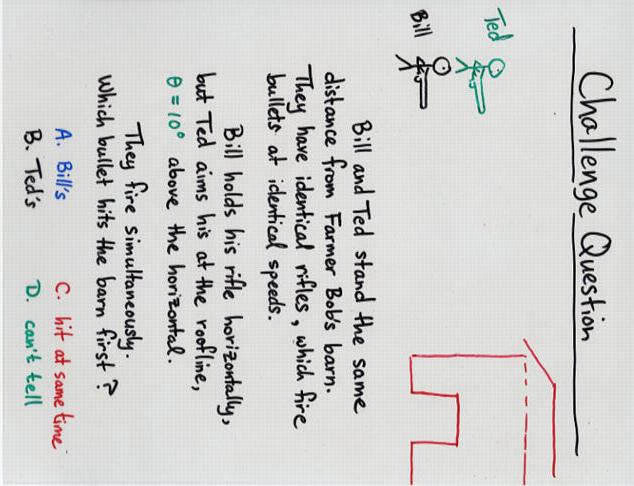 Challenge Question
Ted
Bill
Bill and Ted stand the same
distance from Farmer Bob's barn.
They have identical rifles, which fire
bullets at identical speeds.
Bill holds his rifle horizontally,
but Ted aims his at the roofline,
θ = 10° above the horizontal.
They fire simultaneously.
Which bullet hits the barn first?
A. Bill's
B. Ted's
C. hit at same time
D. can't tell